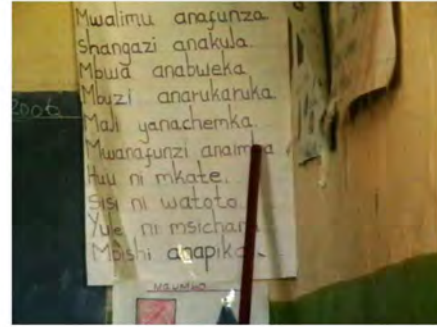 Mwalimu anafunza.
Shangazi anakula.
Mbwa anabweka
Mbuzi anarukaruka.
Maji yanachemka.
Mwanafunzi anaimba
Huu ni mkate.
Sisi ni watoto.
Yule ni msichana
Mpishi anapika.
2006
MSUMBO